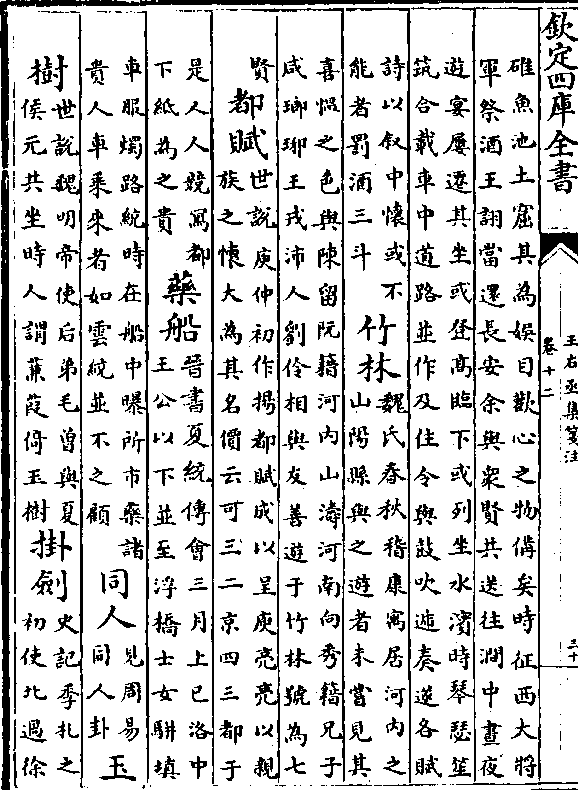 欽定四庫全書
王右丞集箋注
卷十二
三十
碓魚池土窟其為娛目歡心之物備矣時征西大將
軍祭酒王詡當還長安余與衆賢共送往澗中晝夜
遊宴屢遷其坐或登髙臨下或列坐水濱時琴瑟笙
筑合載車中道路並作及住令與鼓吹遞奏遂各賦
詩以叙中懷或不
能者罰酒三斗
竹林
魏氏春秋稽康寓居河内之
山陽縣與之遊者未嘗見其
喜愠之色與陳留阮籍河内山濤河南向秀籍兄子
咸瑯琊王戎沛人劉伶相與友善遊于竹林號為七
賢
都賦
世說庾仲初作揚都賦成以呈庾亮亮以親
族之懷大為其名價云可三二京四三都于
是人人競寫都
下紙為之貴
藥船
晉書夏統傳會三月上巳洛中
王公以下並至浮橋士女駢填
車服燭路統時在船中曝所市藥諸
貴人車乘來者如雲統並不之顧
同人
見周易
同人卦
玉
樹
世說魏明帝使后弟毛曾與夏
侯元共坐時人謂蒹葭倚玉樹
掛劍
史記季札之
初使北過徐